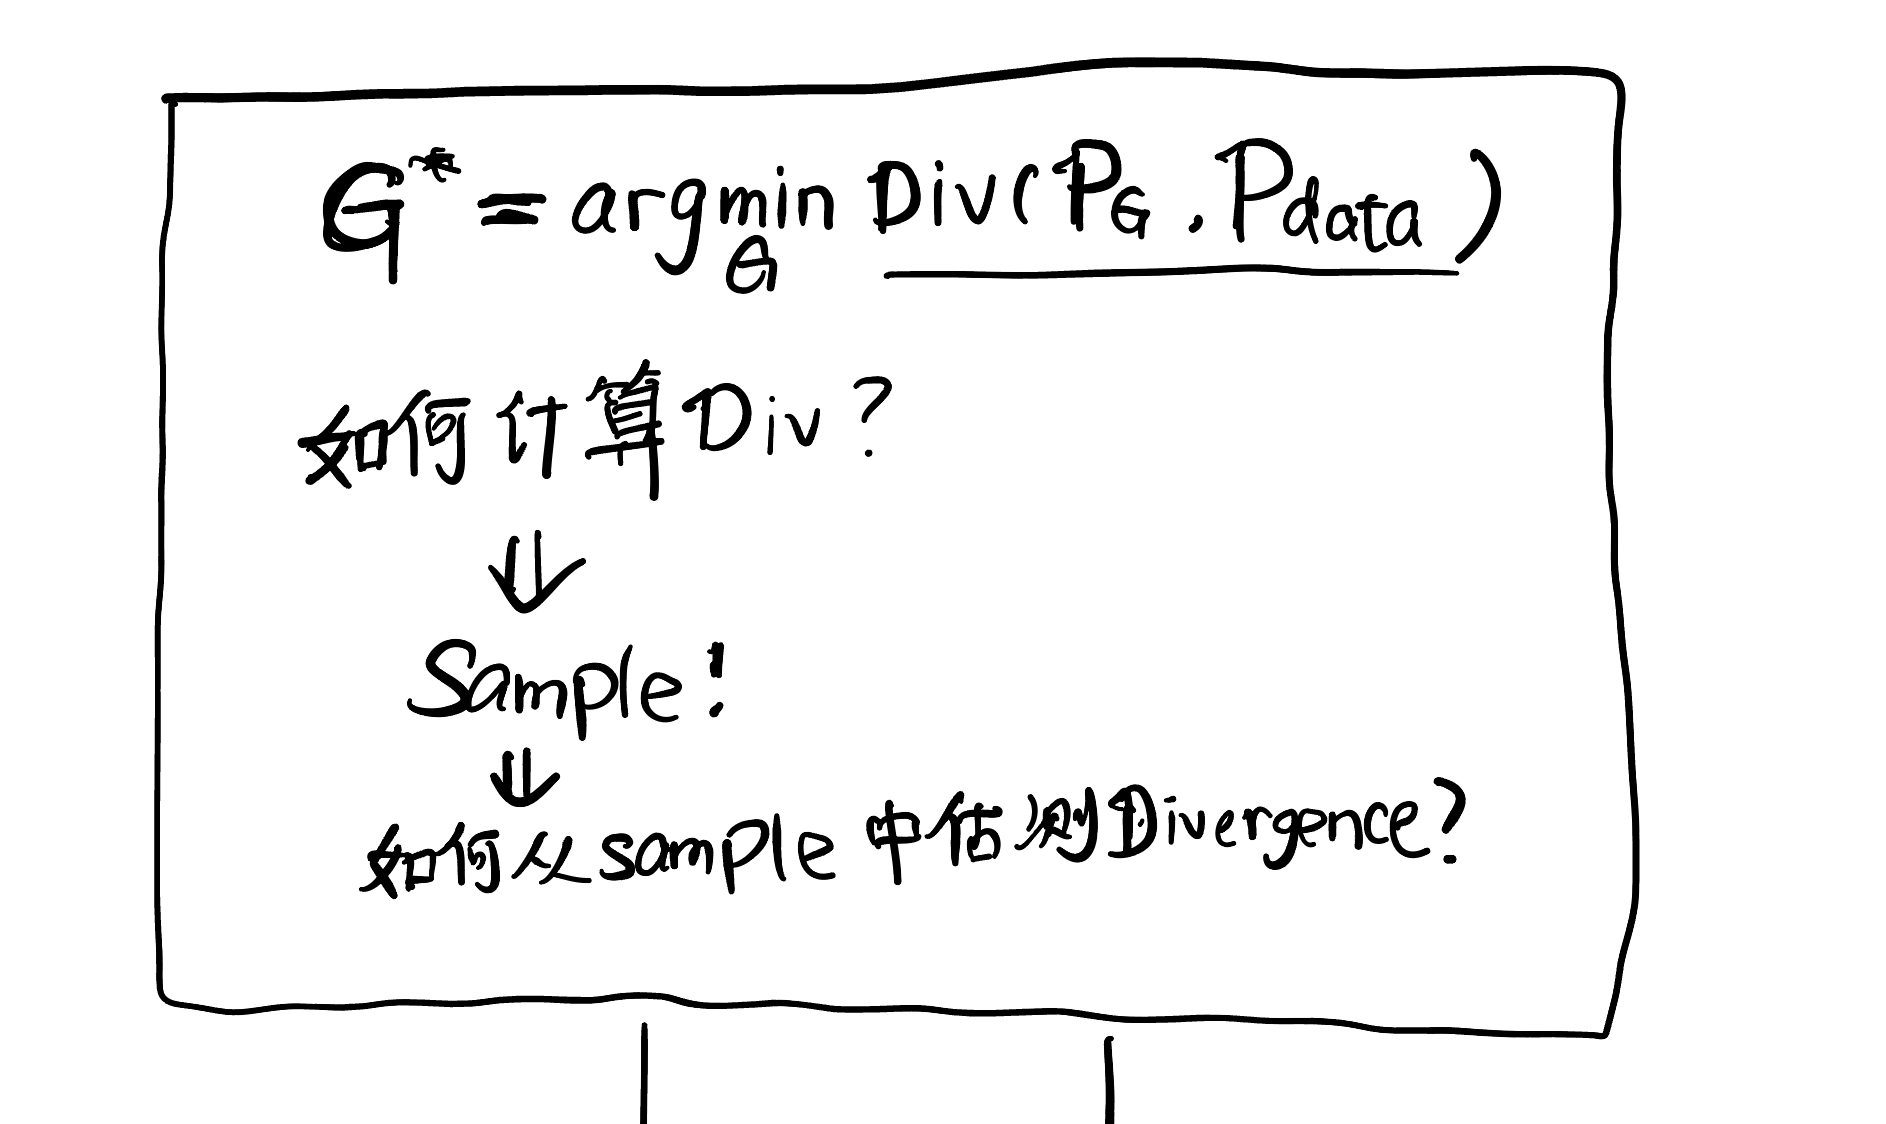 G* = arg min Div(P_G, P_data)
G
如何计算Div?
⇓
Sample!
⇓
如何从sample中估测Divergence?